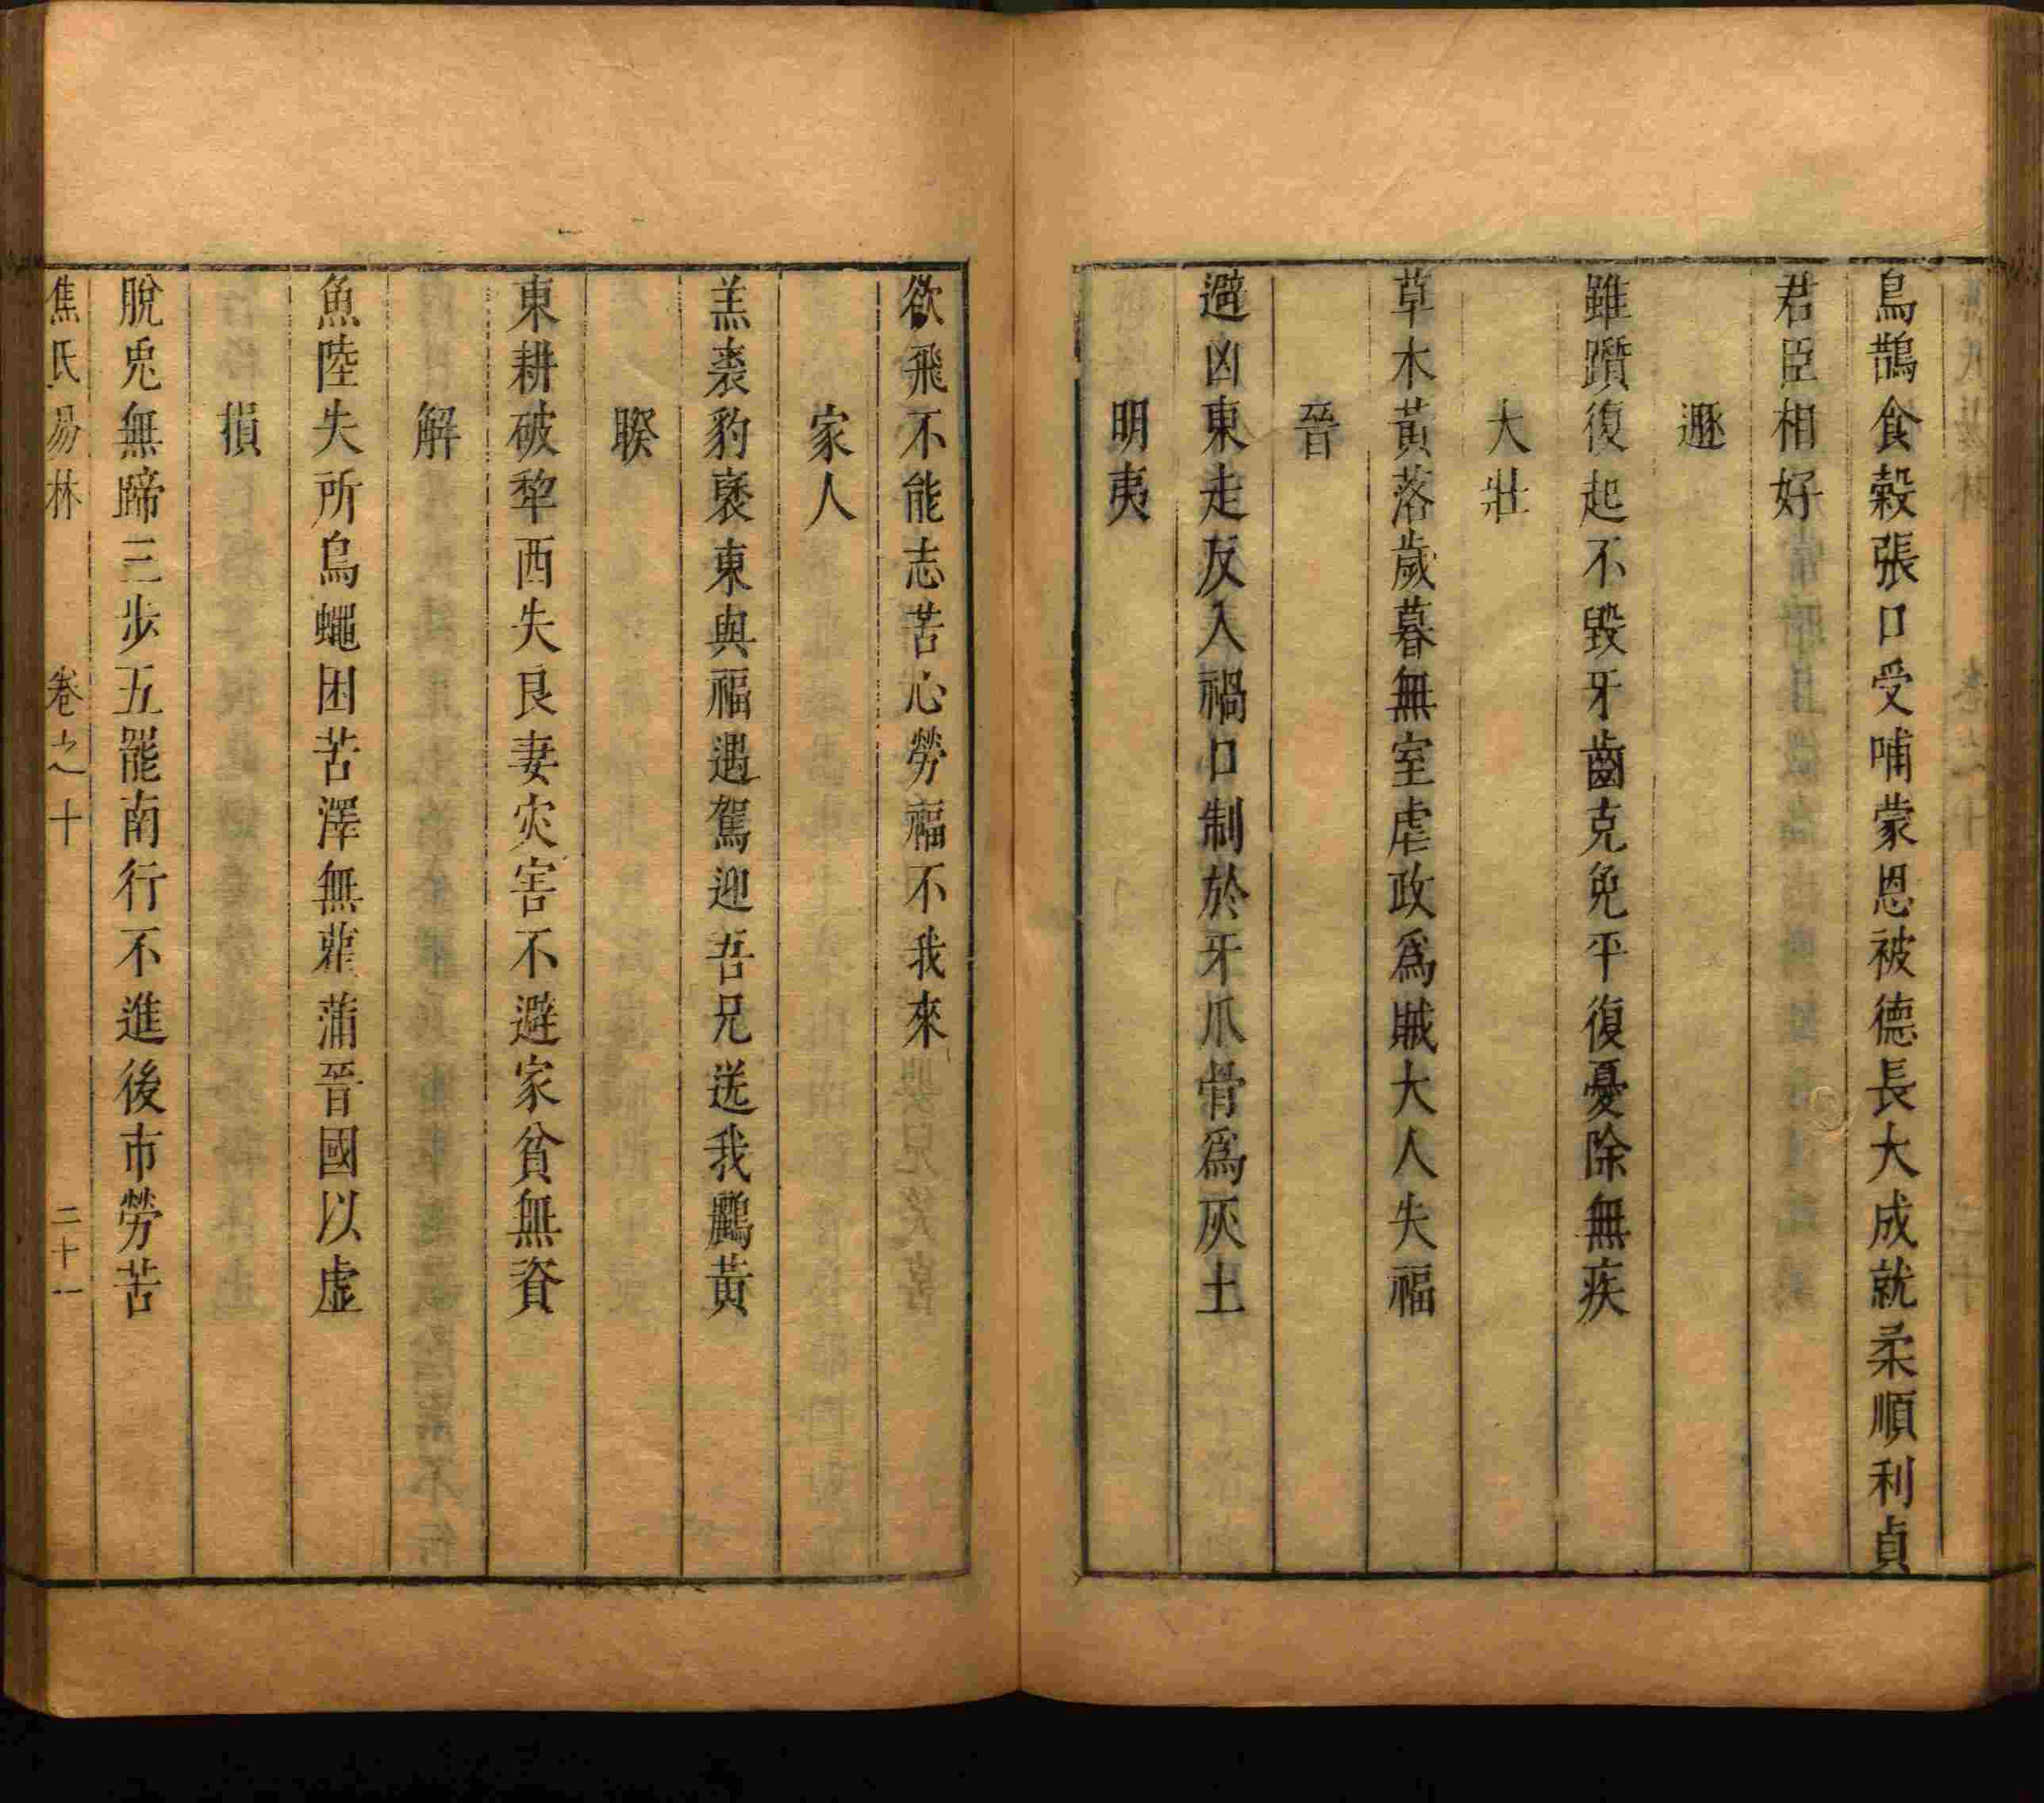 鳥鵲食穀張口受哺蒙恩被德長大成就柔順利貞
君臣相好
遯
雖躓復起不毀牙齒克免平復憂除無疾
大壯
草木黃落歲暮無室虐政爲賊大人失福
晉
避凶東走反入禍口制於牙爪骨爲灰土
明夷
欲飛不能志苦心勞福不我來
家人
羔裘豹褎東與福遇駕迎吾兄送我鸝黃
睽
東耕破犂西失良妻灾害不避家貧無資
解
魚陸失所烏蠅困苦澤無雚蒲晉國以虛
損
脫兎無蹄三步五罷南行不進後市勞苦
焦氏易林 卷之十 二十一